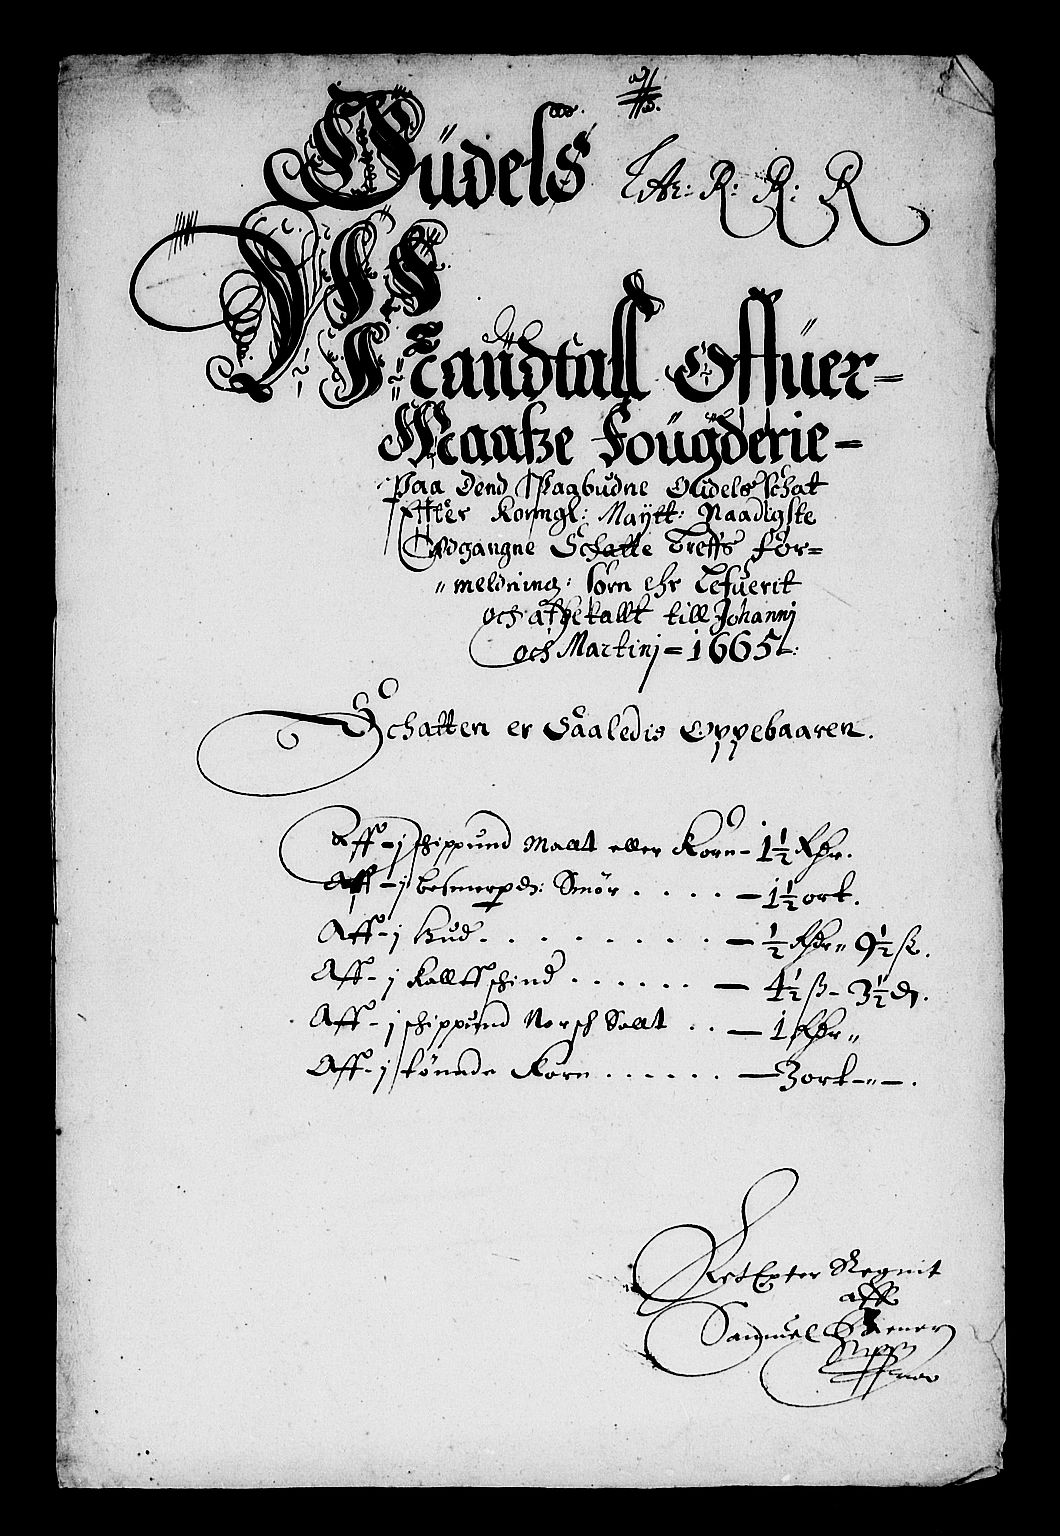 Oüdels Litr: R: R: R
Mandtall Offuer
Maatze Fougderie
Paa Dend Paabudne Oudels schat
Effter Konngl: Maÿtt: Naadigste
Udgangne Schatte Breffs For=
meldning: som ehr Lefuerit
och afbetallt till Johannj
och Martinj = 1665:
Schatten er Saaledis Oppebaaren.
Aff - j schippund Mallt eller Korn - 1½ Rdr.
Aff - j besmerpd: Smör . . . . — 1½ ort.
Aff - j Hud . . . . . . . . — ½ Rdr„ 9½ ß.
Aff - j Kallffschind . . . . . . — 4½ ß - 3½ d.
Aff - j schippund Norsch Sallt . . — 1 Rdr„
Aff - j tönnde Korn . . . . . . — 3 ort - „ - .
Rett Exter Regnit
aff
Samuel